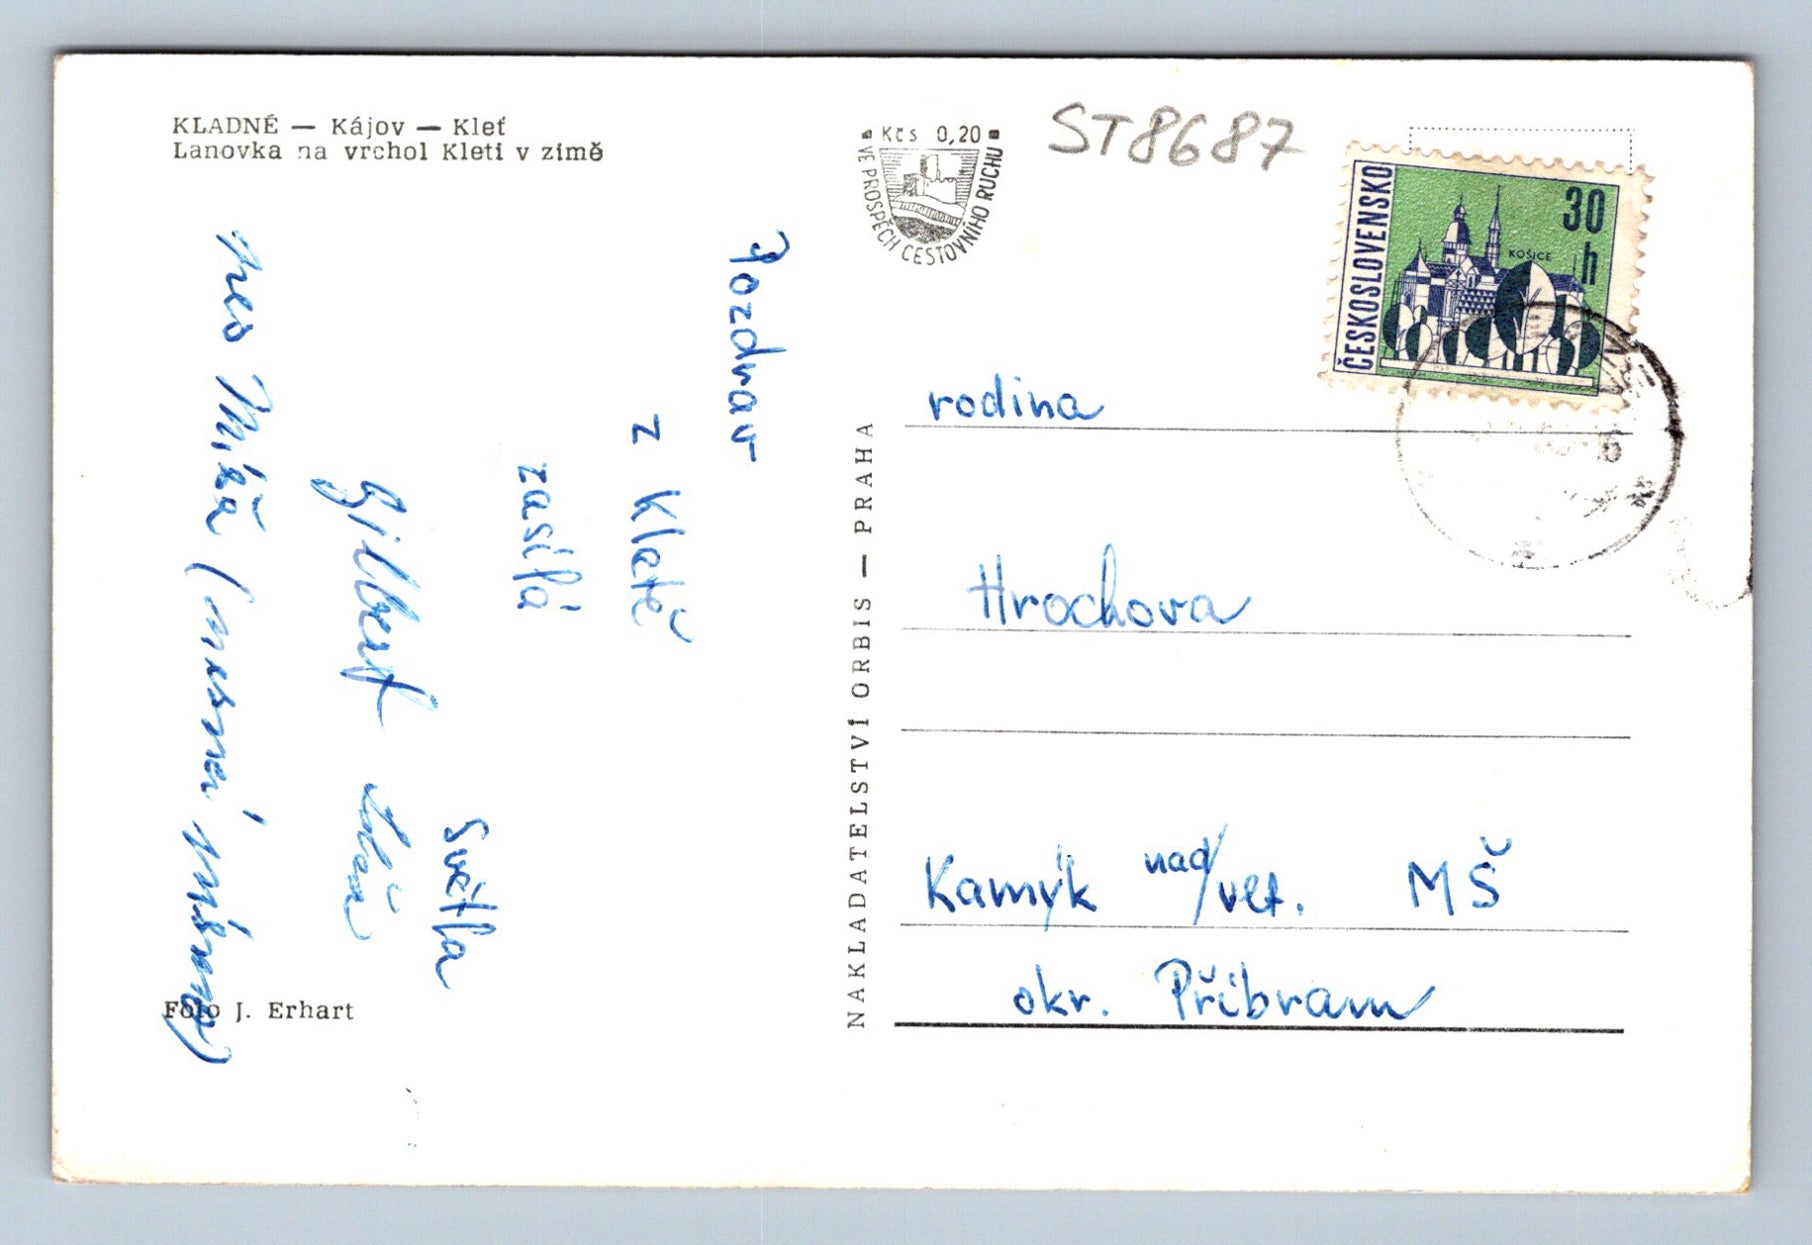 KLADNÉ — Kájov — Kleť
Lanovka na vrchol Kleti v zimě
Kčs 0,20
VE PROSPĚCH CESTOVNÍHO RUCHU
ST8687
ČESKOSLOVENSKO
30
h
KOŠICE
Pozdrav
z Kletě
zasílá
Světla
Gilbert
Míša
rodina
Hrochova
Kamýk nad/vlt. MŠ
okr. Příbram
NAKLADATELSTVÍ ORBIS — PRAHA
Foto J. Erhart